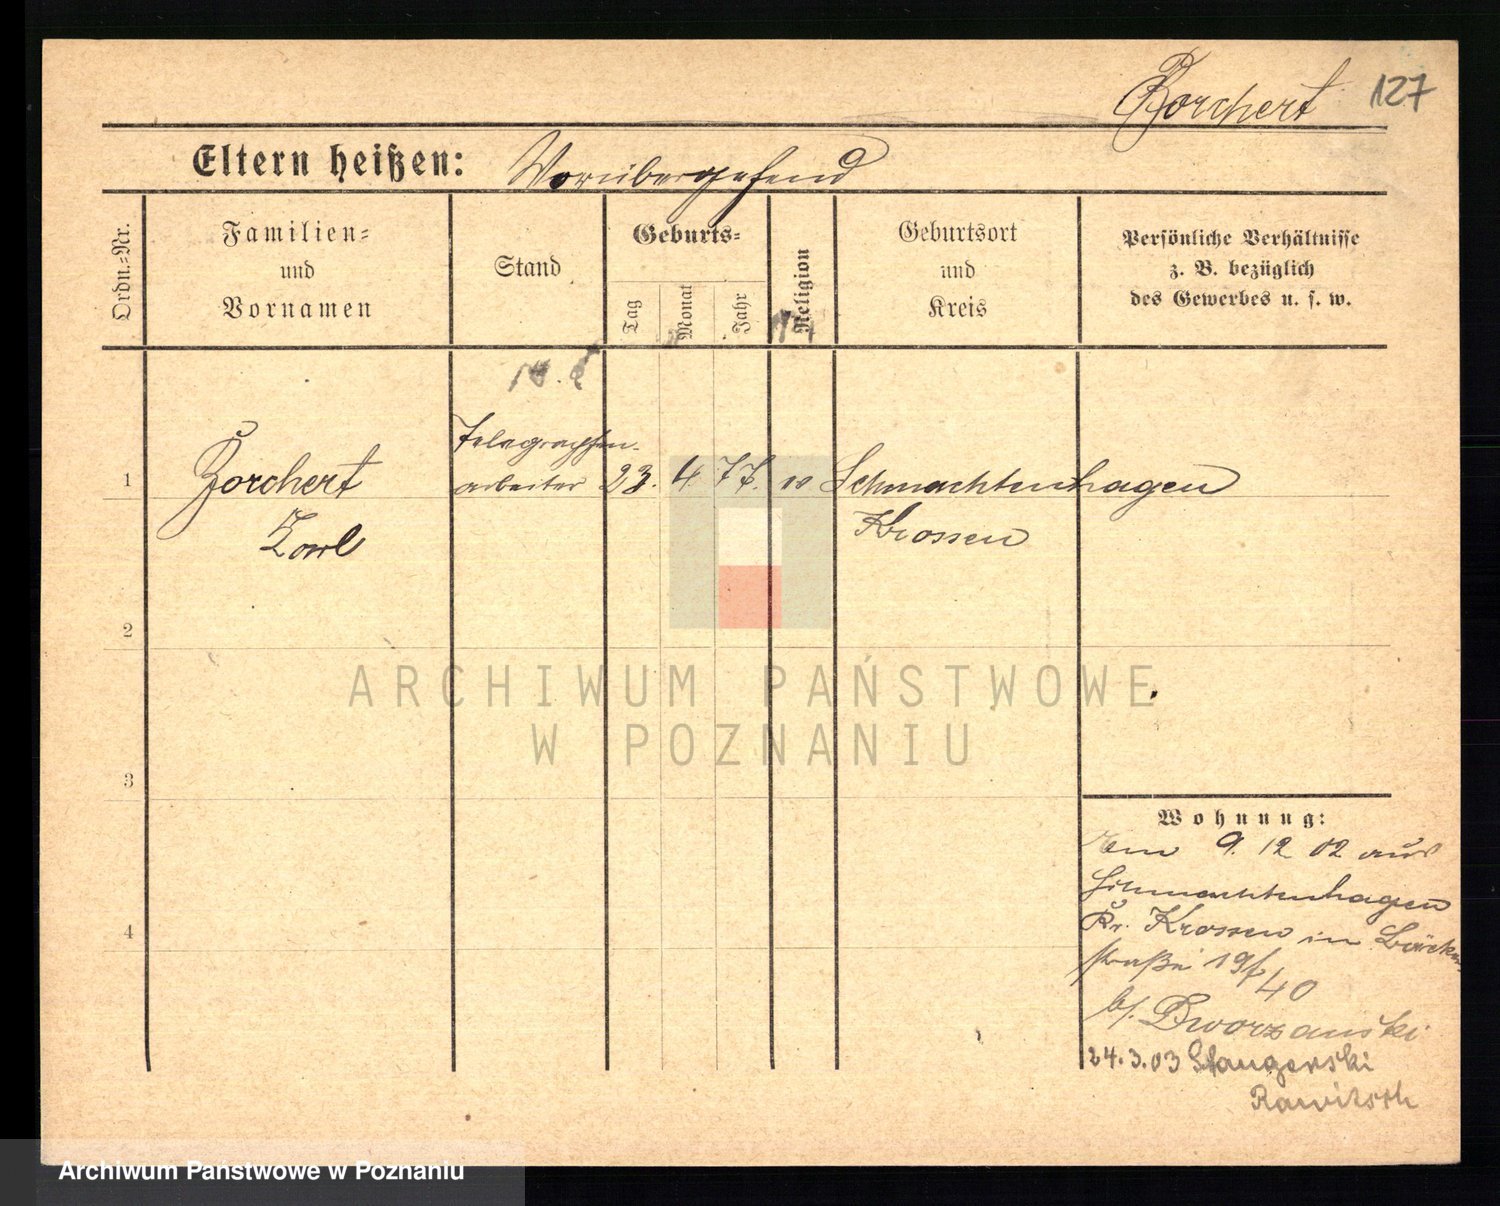 Borchert 127
Eltern heißen: Vorübergehend
Ordn.=Nr.
Familien= und Vornamen
Stand
Geburts=
Tag
Monat
Jahr
Religion
Geburtsort und Kreis
Persönliche Verhältnisse
z. B. bezüglich
des Gewerbes u. s. w.
1
Borchert
Karl
Telegraphen-
arbeiter
23. 4. 77.
Schmachtenhagen
Krossen
2
3
4
Wohnung:
9. 12 02 aus
Schmachtenhagen
Kr. Krossen in Bäcker
straße 19 / 40
b/. Dworzanski
24.3.03
Rawitsch
ARCHIWUM PAŃSTWOWE
W POZNANIU
Archiwum Państwowe w Poznaniu